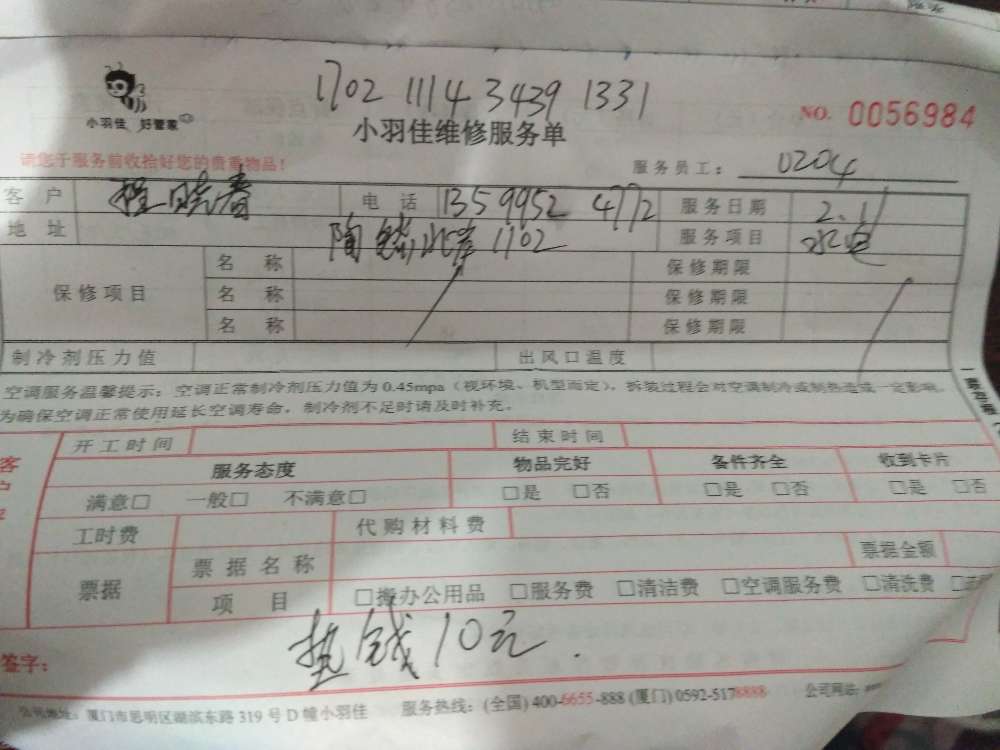 1702 1114 3439 1331
小羽佳 好管家
小羽佳维修服务单
NO. 0056984
请您于服务前收拾好您的贵重物品!
服务员工: 0204
客 户 程晓春 电 话 13599952 4772 服务日期 2.1
地 址 1102 服务项目 水电
保修项目 名 称 保修期限
名 称 保修期限
名 称 保修期限
制冷剂压力值 出风口温度
空调服务温馨提示: 空调正常制冷剂压力值为0.45mpa (视环境、机型而定), 拆装过程会对空调制冷或制热造成一定影响,
为确保空调正常使用延长空调寿命, 制冷剂不足时请及时补充。
开工时间 结束时间
服务态度 物品完好 备件齐全 收到卡片
满意□ 一般□ 不满意□ □是 □否 □是 □否 □是 □否
工时费 代购材料费
票据 票据名称 票据金额
项 目 □搬办公用品 □服务费 □清洁费 □空调服务费 □清洗费
垫钱10元.
签字:
公司地址: 厦门市思明区湖滨东路319号D幢小羽佳 服务热线: (全国) 400-6655-888 (厦门) 0592-5178888 公司网站: